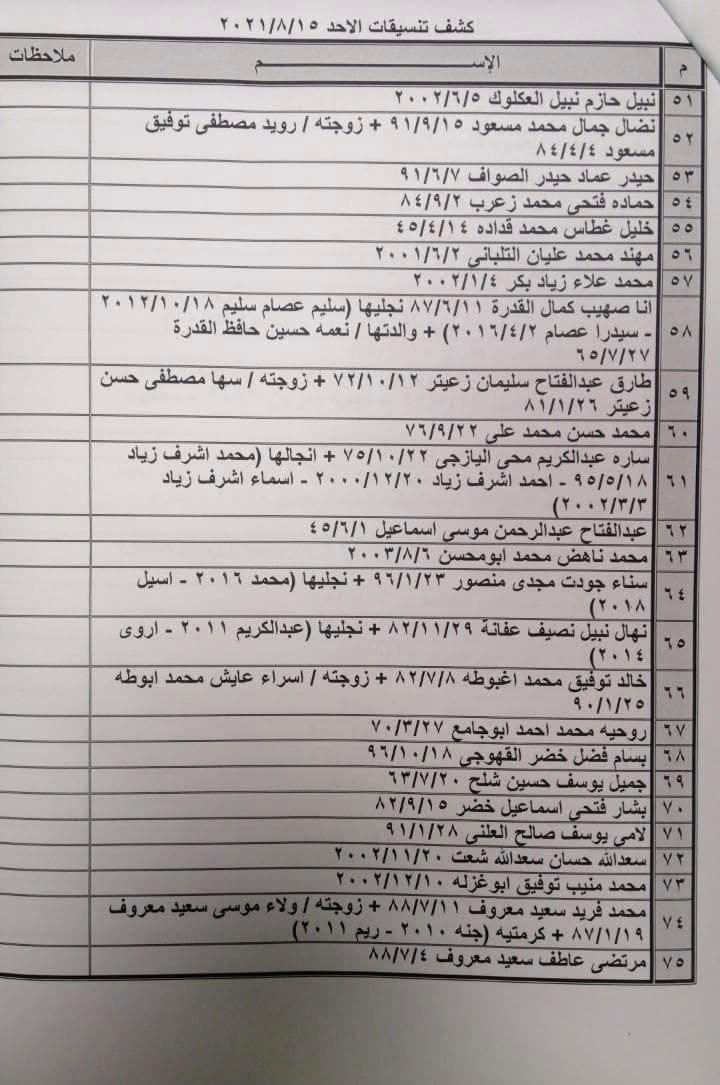 كشف تنسيقات الاحد ٢٠٢١/٨/١٥
م الإســـم ملاحظات
٥١ نبيل حازم نبيل العكلوك ٢٠٠٢/٦/٥
٥٢ نضال جمال محمد مسعود ٩١/٩/١٥ + زوجته / رويد مصطفى توفيق
مسعود ٨٤/٤/٤
٥٣ حيدر عماد حيدر الصواف ٩١/٦/٧
٥٤ حماده فتحى محمد زعرب ٨٤/٩/٢
٥٥ خليل غطاس محمد قداده ٤٥/٤/١٤
٥٦ مهند محمد عليان التلبانى ٢٠٠١/٦/٢
٥٧ محمد علاء زياد بكر ٢٠٠٢/١/٤
٥٨ انا صهيب كمال القدرة ٨٧/٦/١١ نجليها (سليم عصام سليم ٢٠١٢/١٠/١٨
- سيدرا عصام ٢٠١٦/٤/٢) + والدتها / نعمه حسين حافظ القدرة
٦٥/٧/٢٧
٥٩ طارق عبدالفتاح سليمان زعيتر ٧٢/١٠/١٢ + زوجته / سها مصطفى حسن
زعيتر ٨١/١/٢٦
٦٠ محمد حسن محمد على ٧٦/٩/٢٢
٦١ ساره عبدالكريم محى اليازجى ٧٥/١٠/٢٢ + انجالها (محمد اشرف زياد
٩٥/٥/١٨ - احمد اشرف زياد ٢٠٠٠/١٢/٢٠ - اسماء اشرف زياد
٢٠٠٢/٣/٣)
٦٢ عبدالفتاح عبدالرحمن موسى اسماعيل ٤٥/٦/١
٦٣ محمد ناهض محمد ابومحسن ٢٠٠٣/٨/٦
٦٤ سناء جودت مجدى منصور ٩٦/١/٢٣ + نجليها (محمد ٢٠١٦ - اسيل
٢٠١٨)
٦٥ نهال نبيل نصيف عفانة ٨٢/١١/٢٩ + نجليها (عبدالكريم ٢٠١١ - اروى
٢٠١٤)
٦٦ خالد توفيق محمد اغبوطه ٨٢/٧/٨ + زوجته / اسراء عايش محمد ابوطه
٩٠/١/٢٥
٦٧ روحيه محمد احمد ابوجامع ٧٠/٣/٢٧
٦٨ بسام فضل خضر القهوجي ٩٦/١٠/١٨
٦٩ جميل يوسف حسين شلح ٦٣/٧/٢٠
٧٠ بشار فتحى اسماعيل خضر ٨٢/٩/١٥
٧١ لامى يوسف صالح العلنى ٩١/١/٢٨
٧٢ سعدالله حسان سعدالله شعت ٢٠٠٢/١١/٢٠
٧٣ محمد منيب توفيق ابوغزله ٢٠٠٢/١٢/١٠
٧٤ محمد فريد سعيد معروف ٨٨/٧/١١ + زوجته / ولاء موسى سعيد معروف
٨٧/١/١٩ + كرمتيه (جنه ٢٠١٠ - ريم ٢٠١١)
٧٥ مرتضى عاطف سعيد معروف ٨٨/٧/٤